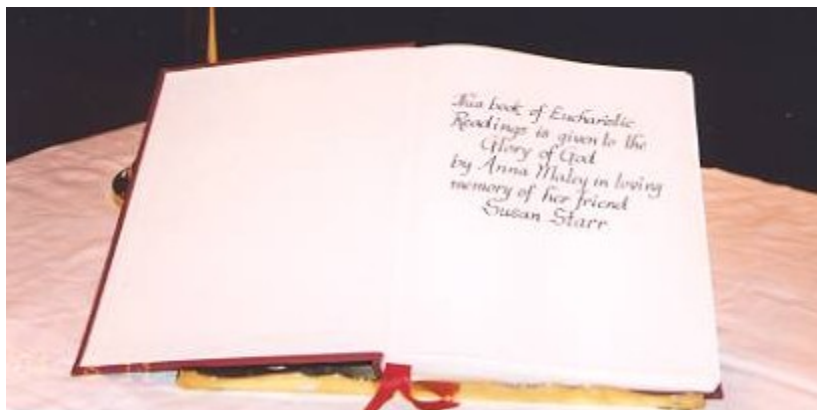 This book of Eucharistic
Readings is given to the
Glory of God
by Anna Maley in loving
memory of her friend
Susan Starr